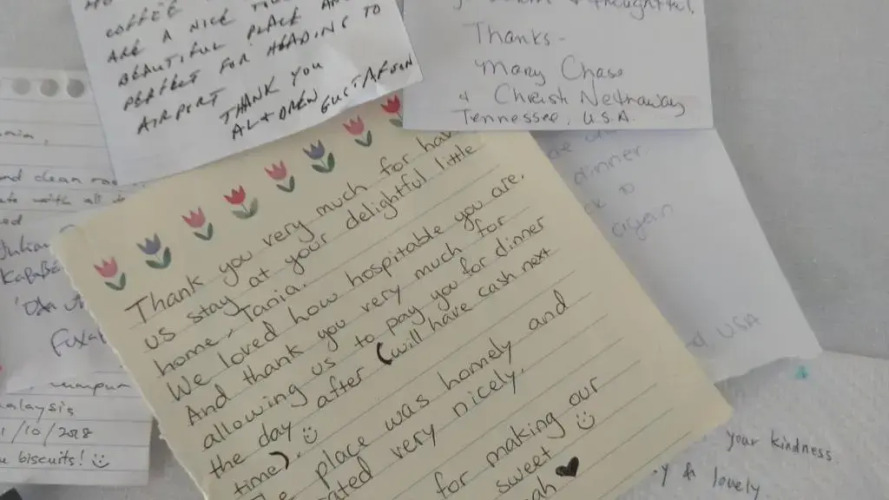 COFFEE
ARE A NICE
BEAUTIFUL PLACE AN
PERFECT FOR HEADING TO
AIRPORT
THANK YOU
AL + DREW GUSTAFSON
thoughtful
Thanks-
Mary Chase
& Christi Nethraway
Tennessee, U.S.A.
Thank you very much for hav
us stay at your delightful little
home, Tania.
We loved how hospitable you are.
And thank you very much for
allowing us to pay you for dinner
the day after (will have cash next
time). ☺
place was homely and
ated very nicely.
for making our
sweet ☺
ah ♥
nia,
nd clean
with all
Julian
dinner
to
again
USA
malaysia
1/10/2018
biscuits! ☺
your kindness
y & lovely